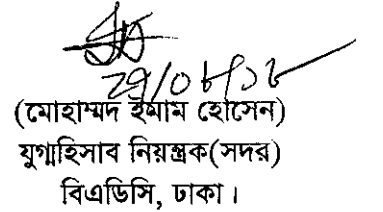 (মোহাম্মদ ইমাম হোসেন)
যুগ্মহিসাব নিয়ন্ত্রক(সদর)
বিএডিসি, ঢাকা।